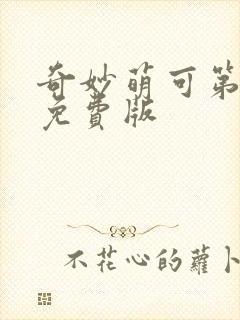 奇妙萌可第
免費版
不花心的蘿卜